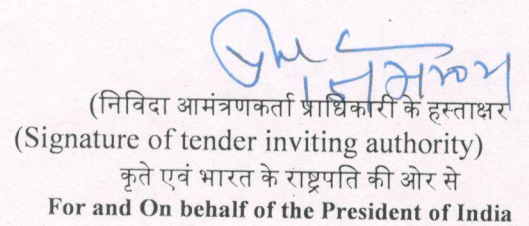 (निविदा आमंत्रणकर्ता प्राधिकारी के हस्ताक्षर
(Signature of tender inviting authority)
कृते एवं भारत के राष्ट्रपति की ओर से
For and On behalf of the President of India